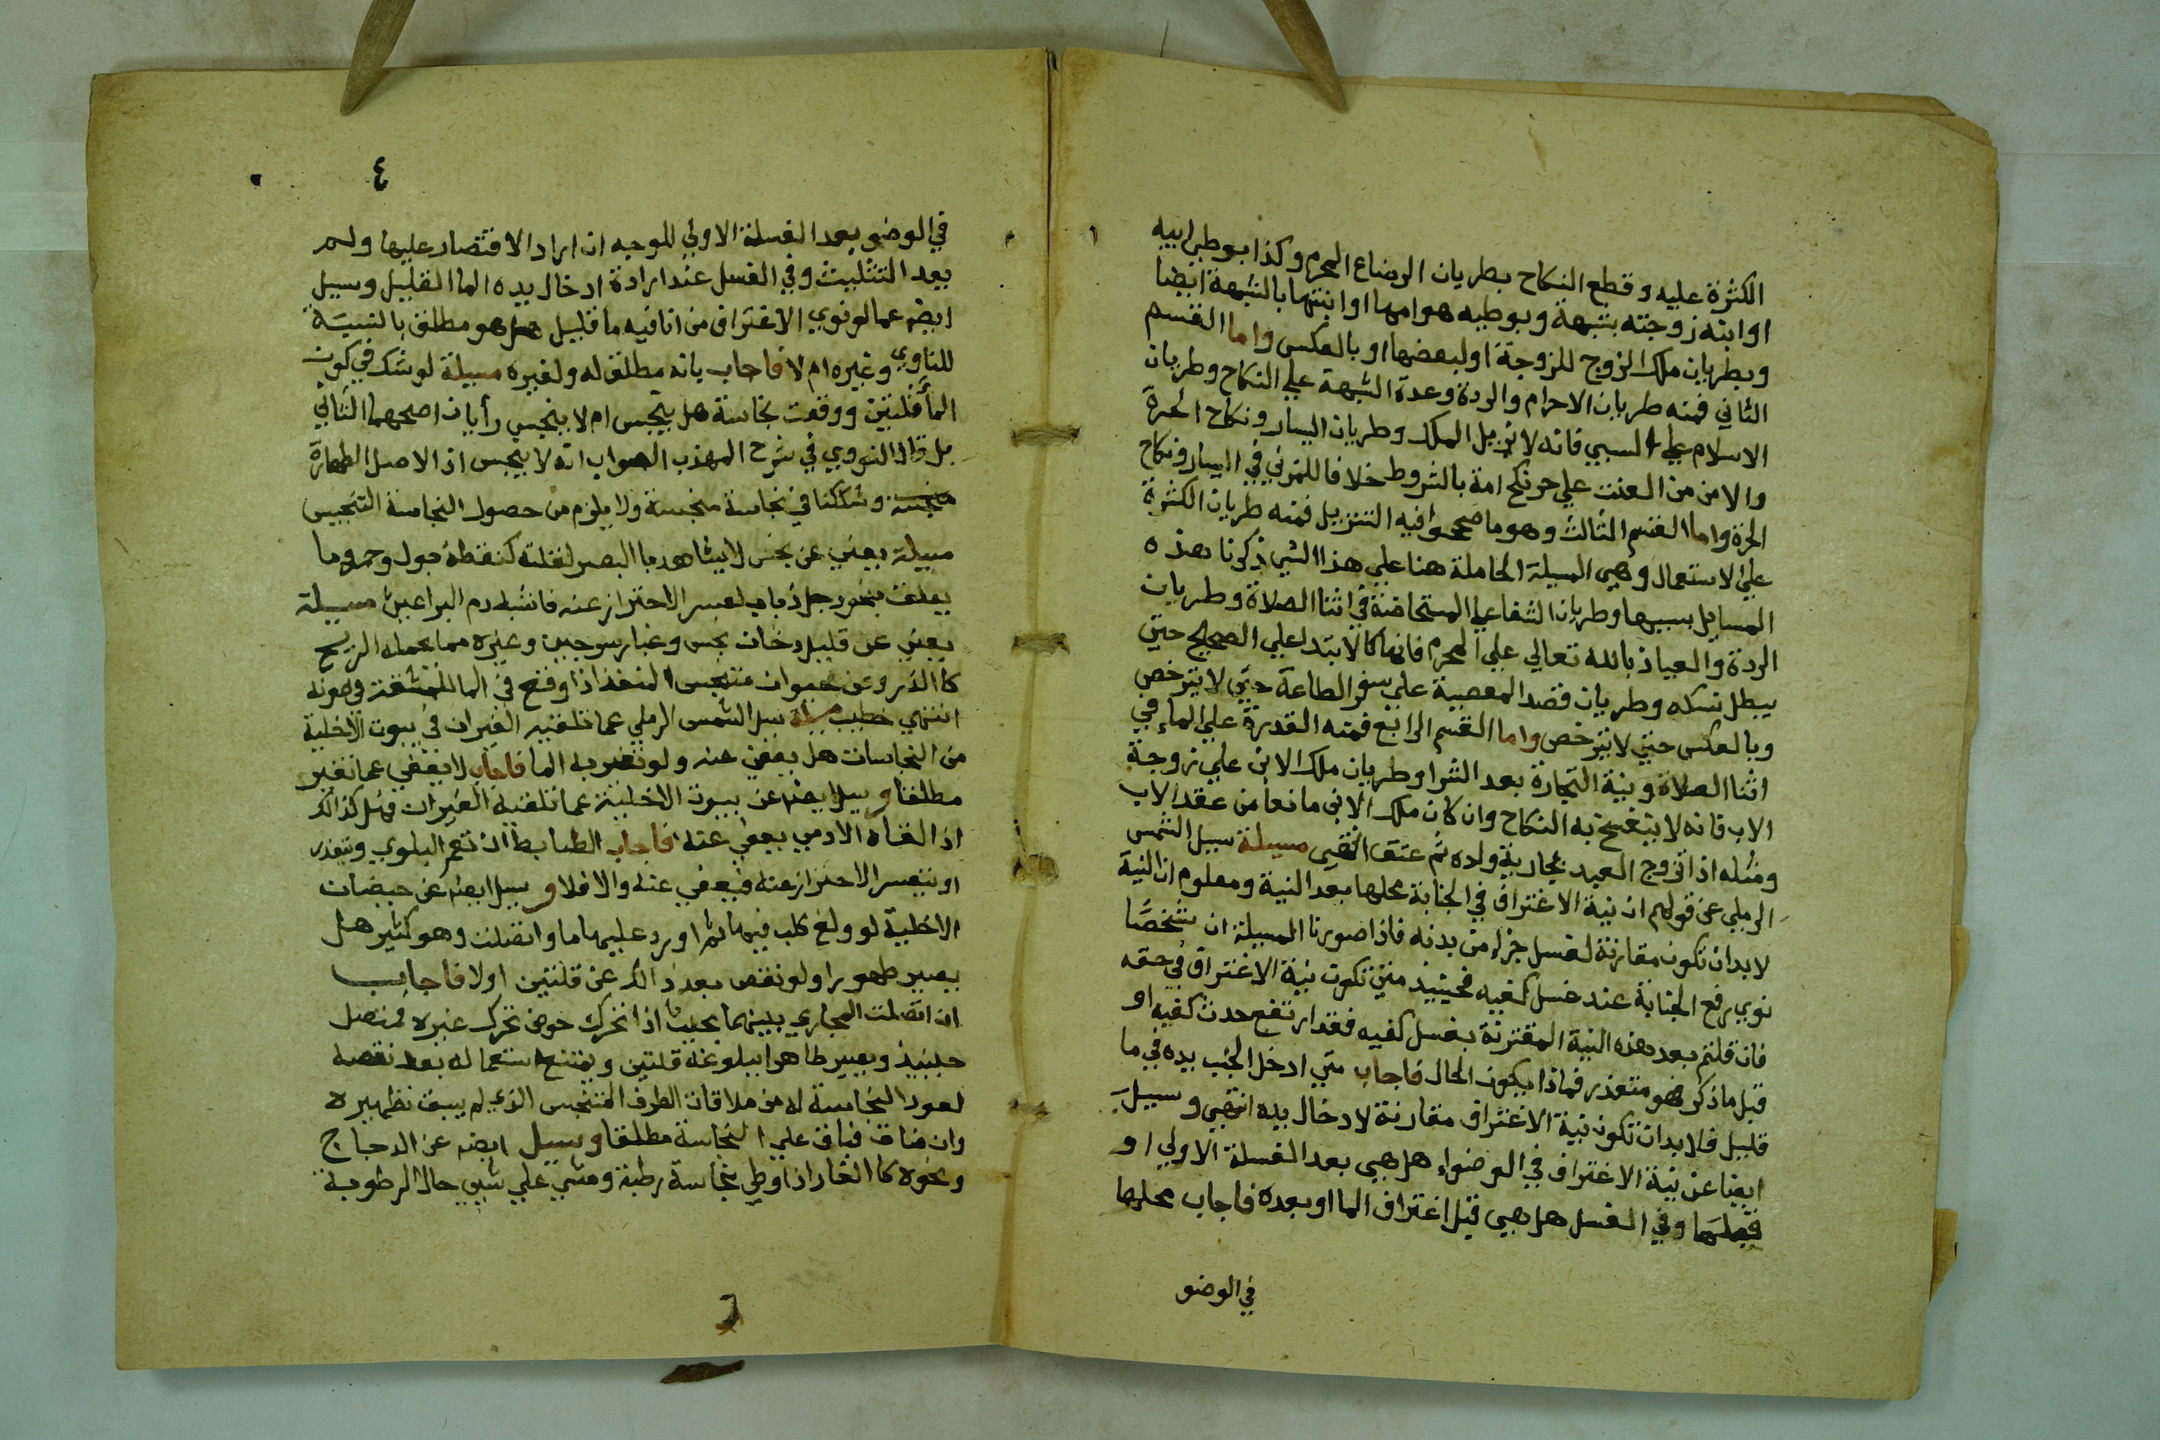 الكثرة عليه وقطع النكاح بطريان الرضاع المحرم وكذا بوطي ابيه
او ابنه زوجته بشبهة وبوطيه هو امها او ابنتها بالشبهة ايضا
وبطريان ملك الزوج للزوجة او لبعضها او بالعكس واما القسم
الثاني فمنه طريان الاحرام والردة وعدة الشبهة علي النكاح وطريان
الاسلام علي السبي فانه لا يزيل الملك وطريان اليسار ونكاح الحرة
والامن من العنت علي حر نكح امة بالشروط خلافا للمزني في اليسار ونكاح
الحرة واما القسم الثالث وهو ما صححوا فيه التنزيل فمنه طريان الكثرة
علي الاستعمال وهي المسيلة الحاملة هنا علي هذا الشي ذكرنا هذه
المسايل بسببها وطريان الشفا علي المستحاضة في اثنا الصلاة وطريان
الردة والعياذ بالله تعالي علي المحرم فانها كالابتدا علي الصحيح حتي
يبطل نسكه وطريان قصد المعصية علي سفر الطاعة حتي لا يترخص
وبالعكس حتي لا يترخص واما القسم الرابع فمنه القدرة علي الماء في
اثنا الصلاة ونية التجارة بعد الشرا وطريان ملك الابن علي زوجة
الاب فانه لا ينفسخ به النكاح وان كان ملك الابن مانعا من عقد الاب
ومثله اذا تزوج العبد بجارية ولده ثم عتق انتهي مسيلة سيل الشمس
الرملي عن قولهم ان نية الاغتراف في الجنابة محلها بعد النية ومعلوم ان النية
لا بد ان تكون مقارنة لغسل جزاء من بدنه فاذا صورنا المسيلة ان شخصًا
نوي رفع الجنابة عند غسل كفيه فحينيذ متي تكون نية الاغتراف في حقه
فان قلتم بعد هذه النية المقترنة بغسل كفيه فقد ارتفع حدث كفيه او
قبل ما ذكر فهو متعذر فماذا يكون الحال فاجاب متي ادخل الجنب يده في ما
قليل فلا بد ان تكون نية الاغتراف مقارنة لادخال يده انتهي وسيل
ايضا عن نية الاغتراف في الوضواء هل هي بعد الغسلة الاولي او
قبلها وفي الغسل هل هي قبل اغتراف الما او بعده فاجاب محلها
في الوضو
٤
في الوضو بعد الغسلة الاولي للوجه ان اراد الاقتصار عليها ولم
يعد التثليث وفي الغسل عند ارادة ادخال يده الما القليل وسيل
ايضه عما لو نوي الاغتراف من انا فيه ما قليل هل هو مطلق بالنسبة
للناوي وغيره ام لا فاجاب بانه مطلق له ولغيره مسيلة لو شك في كون
الما قلتين ووقعت نجاسة هل ينجس ام لا ينجس رأيان اصحهما الثاني
بل قال النووي في شرح المهذب الصواب انه لا ينجس اذ الاصل الطهارة
وشككنا في نجاسة منجسة ولا يلزم من حصول النجاسة التنجيس
مسيلة يعفي عن نجس لا يشاهد بالبصر لقلته كنقطة بول وخمر وما
يعلق بنحو رجل ذباب لعسر الاحتراز عنه فاشبه دم البراغيث مسيلة
يعفي عن قليل دخان نجس وغبار سرجين وغيره مما يحمله الريح
كالذر وعن حيوان متنجس المنفذ اذا وقع في الما للمشقة في صونه
انتهي خطيب مسيلة سيل الشمس الرملي عما تلقيه الفيران في بيوت الاخلية
من النجاسات هل يعفي عنه ولو تغير به الما فاجاب لا يعفي عما تغير
مطلقا وسيل ايضه عن بيوت الاخلية عما تلقيه الفيران وهل كذالك
اذا القاه الادمي يعفي عنه فاجاب الضابط ان تعم البلوي وتتعذر
او يتعسر الاحتراز عنه فيعفي عنه والا فلا وسيل ايضه عن حيضان
الاخلية لو ولغ كلب فيها ثم اورد عليها ما واتصلت وهو كثير هل
يصير طهورا ولو نقص بعد ذالك عن قلتين اولا فاجاب
ان اتصلت المجاري بينهما بحيث اذا تحرك حوض تحرك غيره فمتصل
حينيذ ويصير طاهرا ببلوغه قلتين ويمتنع استعماله بعد نقصه
لعود النجاسة له من ملاقات الطرف المتنجس الذي لم يسبق تطهيره
وان ضاق فباق علي النجاسة مطلقا وسيل ايضه عن الدجاج
ونحوه كالفار اذا وطي نجاسة رطبة ومشي علي شيي حال الرطوبة